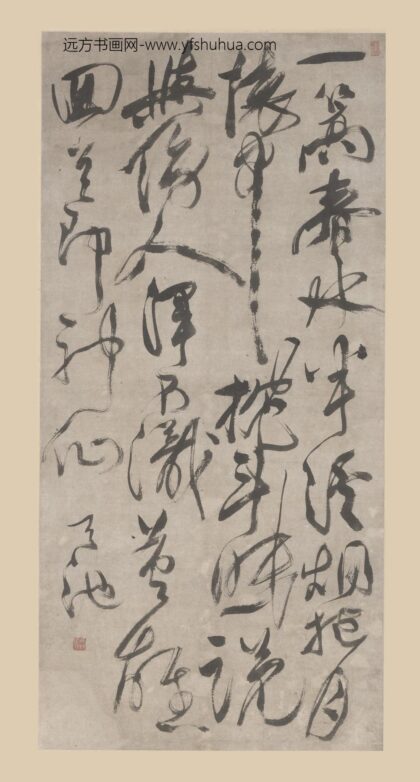 远方书画网-www.yfshuhua.com
一篙春水半溪烟抱月
懷中枕斗眠說
與傍人渾不識英雄
回首即神仙
天池